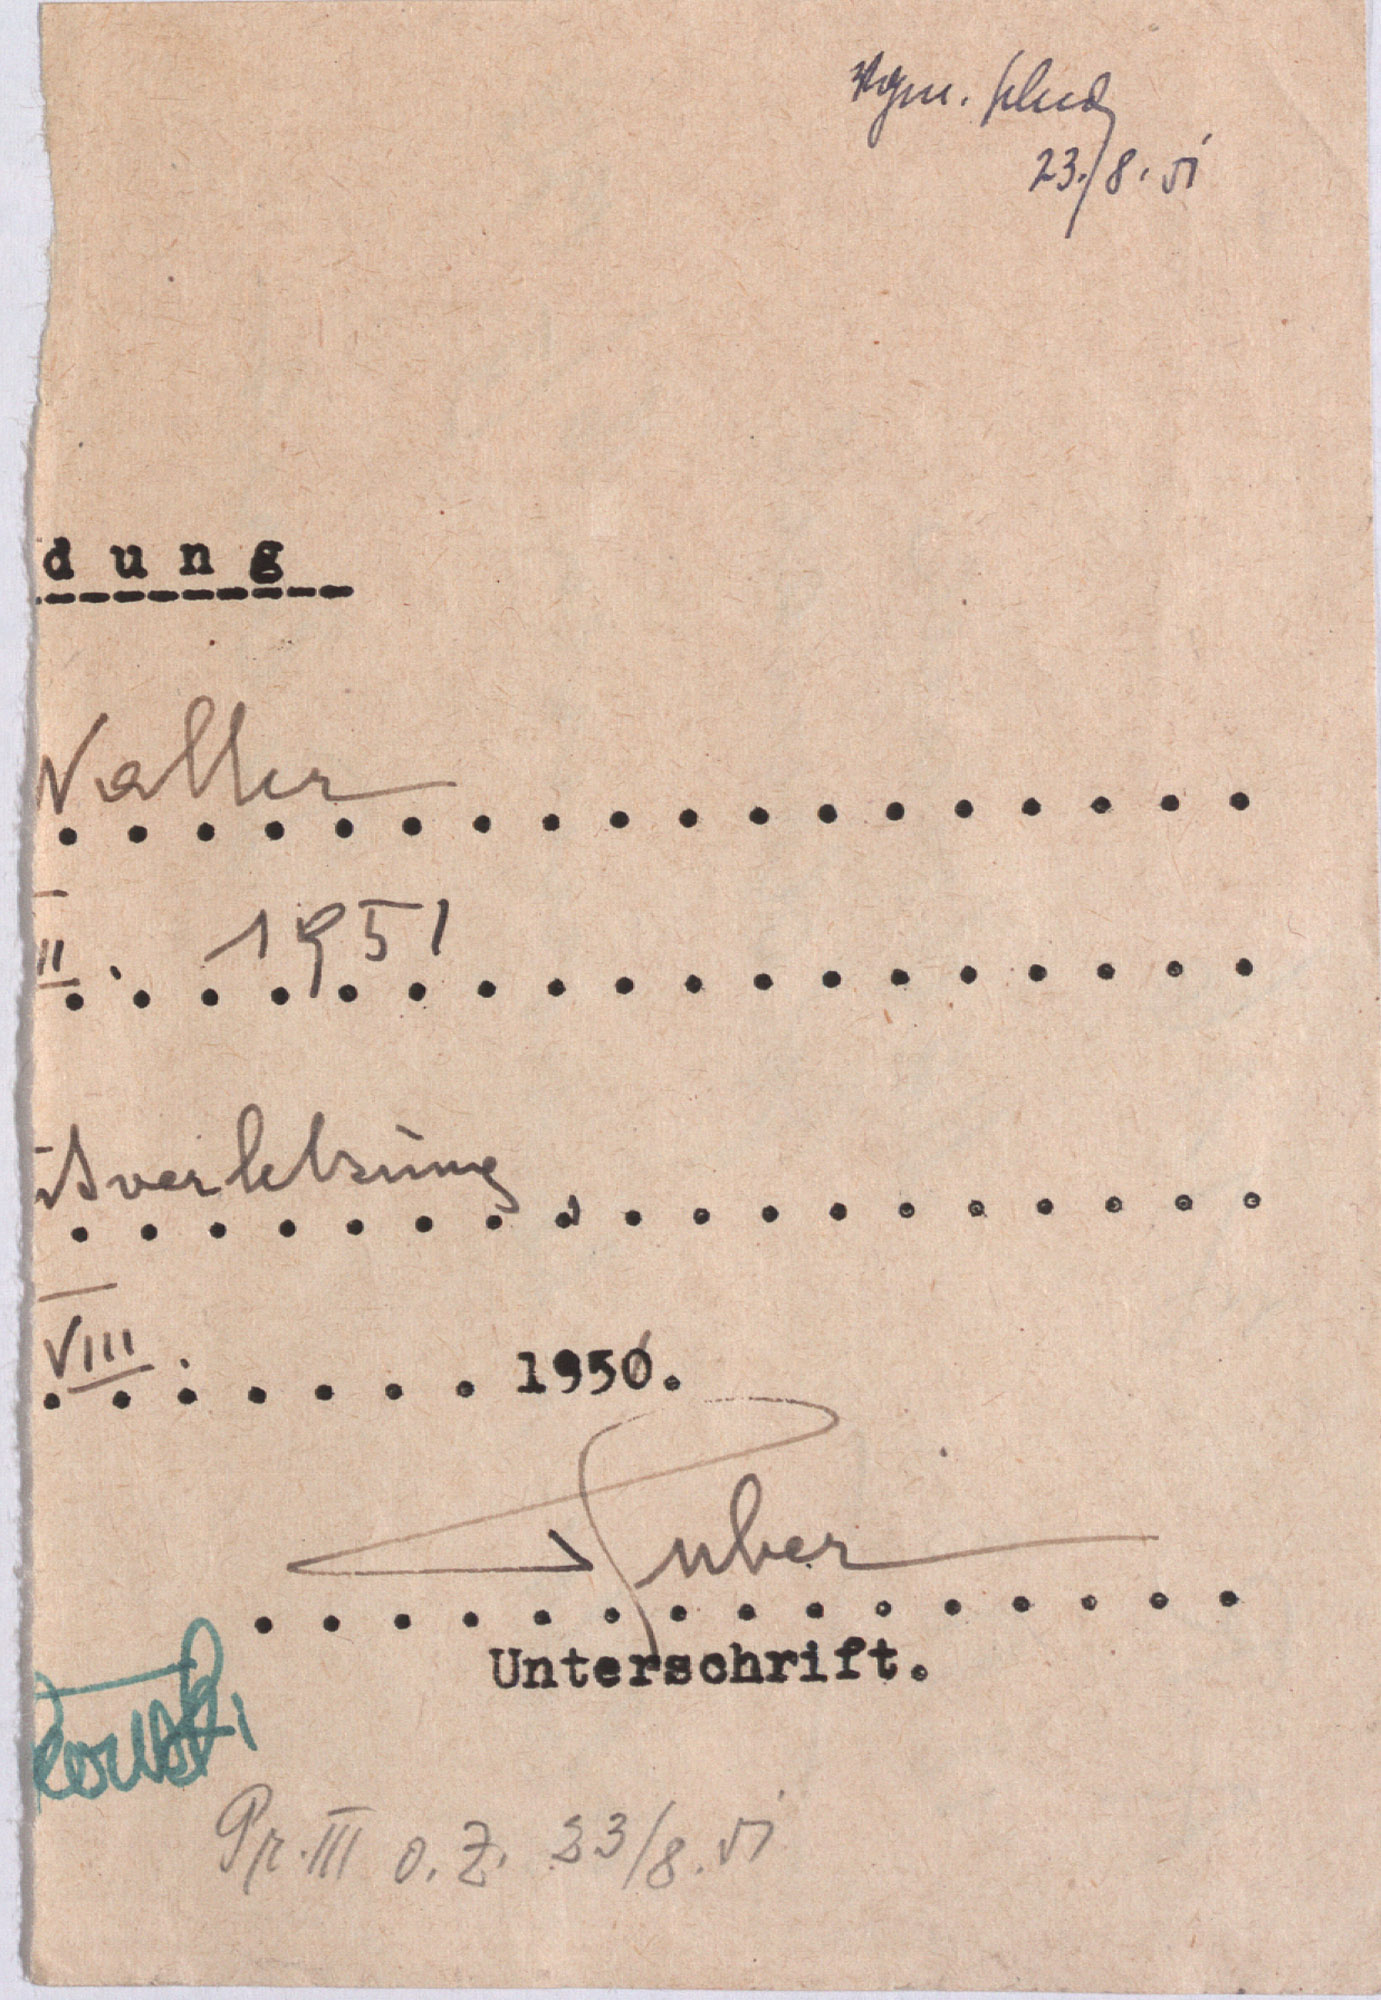 Vgm.
23./8. 51
d u n g
Walter
II. 1951
tsverletzung
VIII. 1950.
Huber
Unterschrift.
kowski
Pr. III o. Z. 23/8. 51